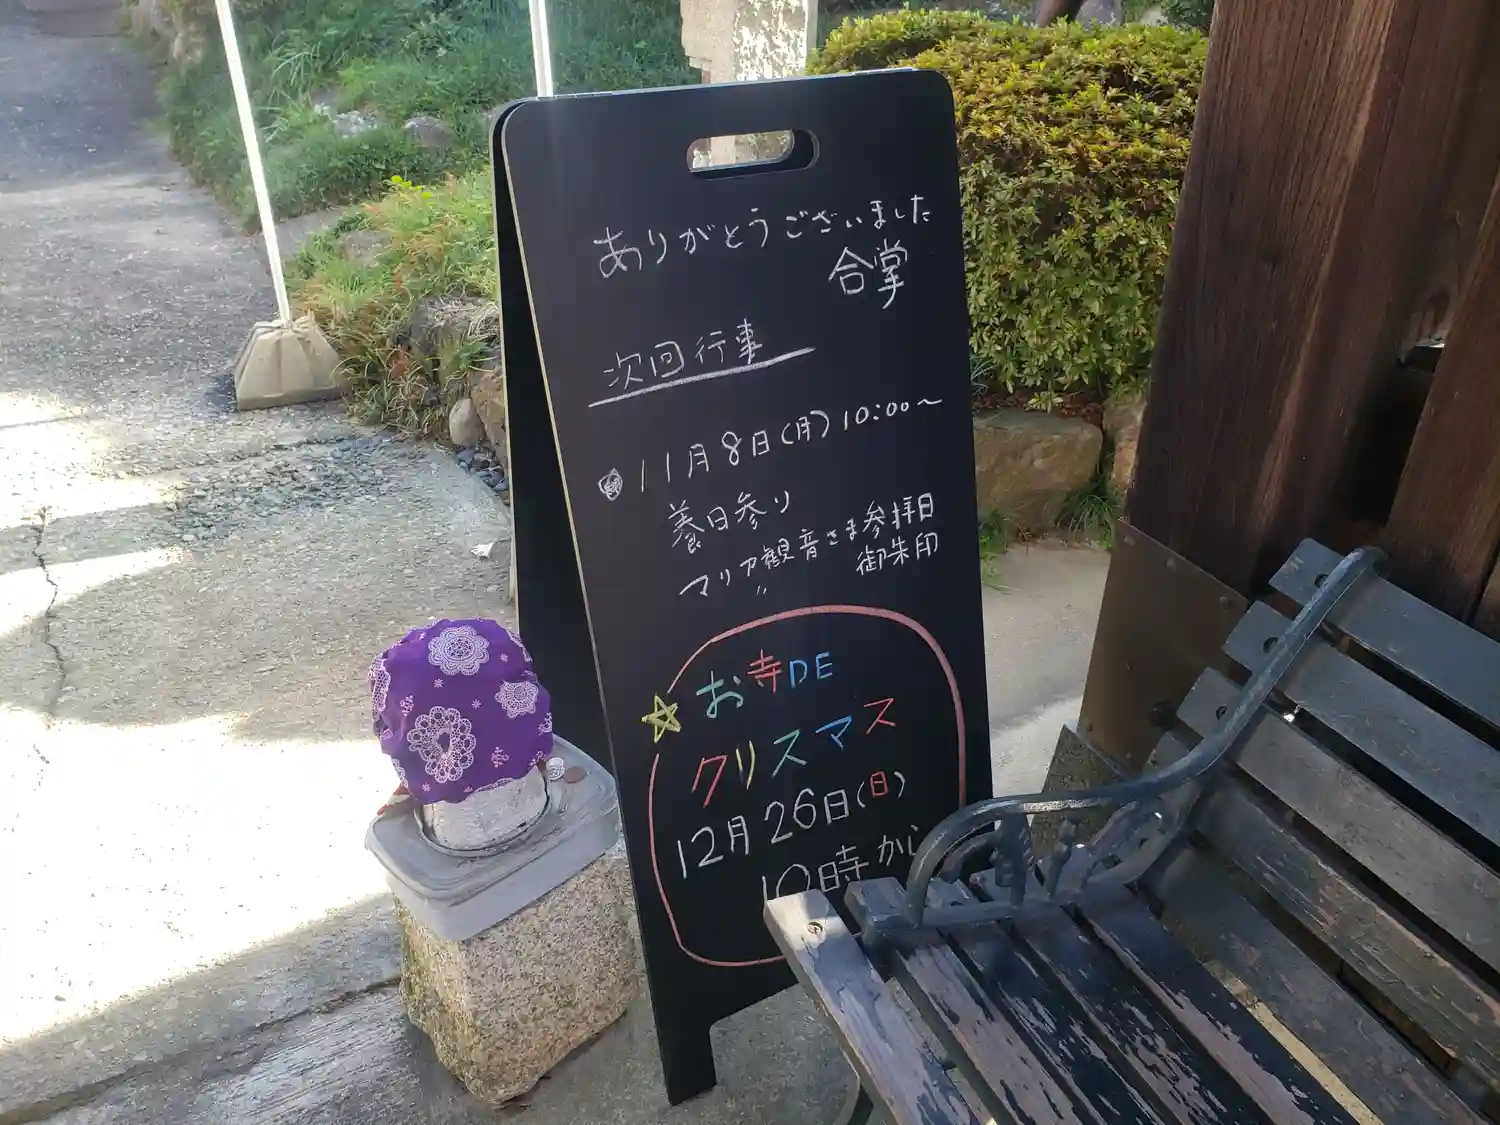 ありがとうございました
合掌
次回行事
11月8日(月)10:00~
養日参り
マリア観音さま参拝日
〃 御朱印
お寺DE
☆クリスマス
12月26日(日)
10時から